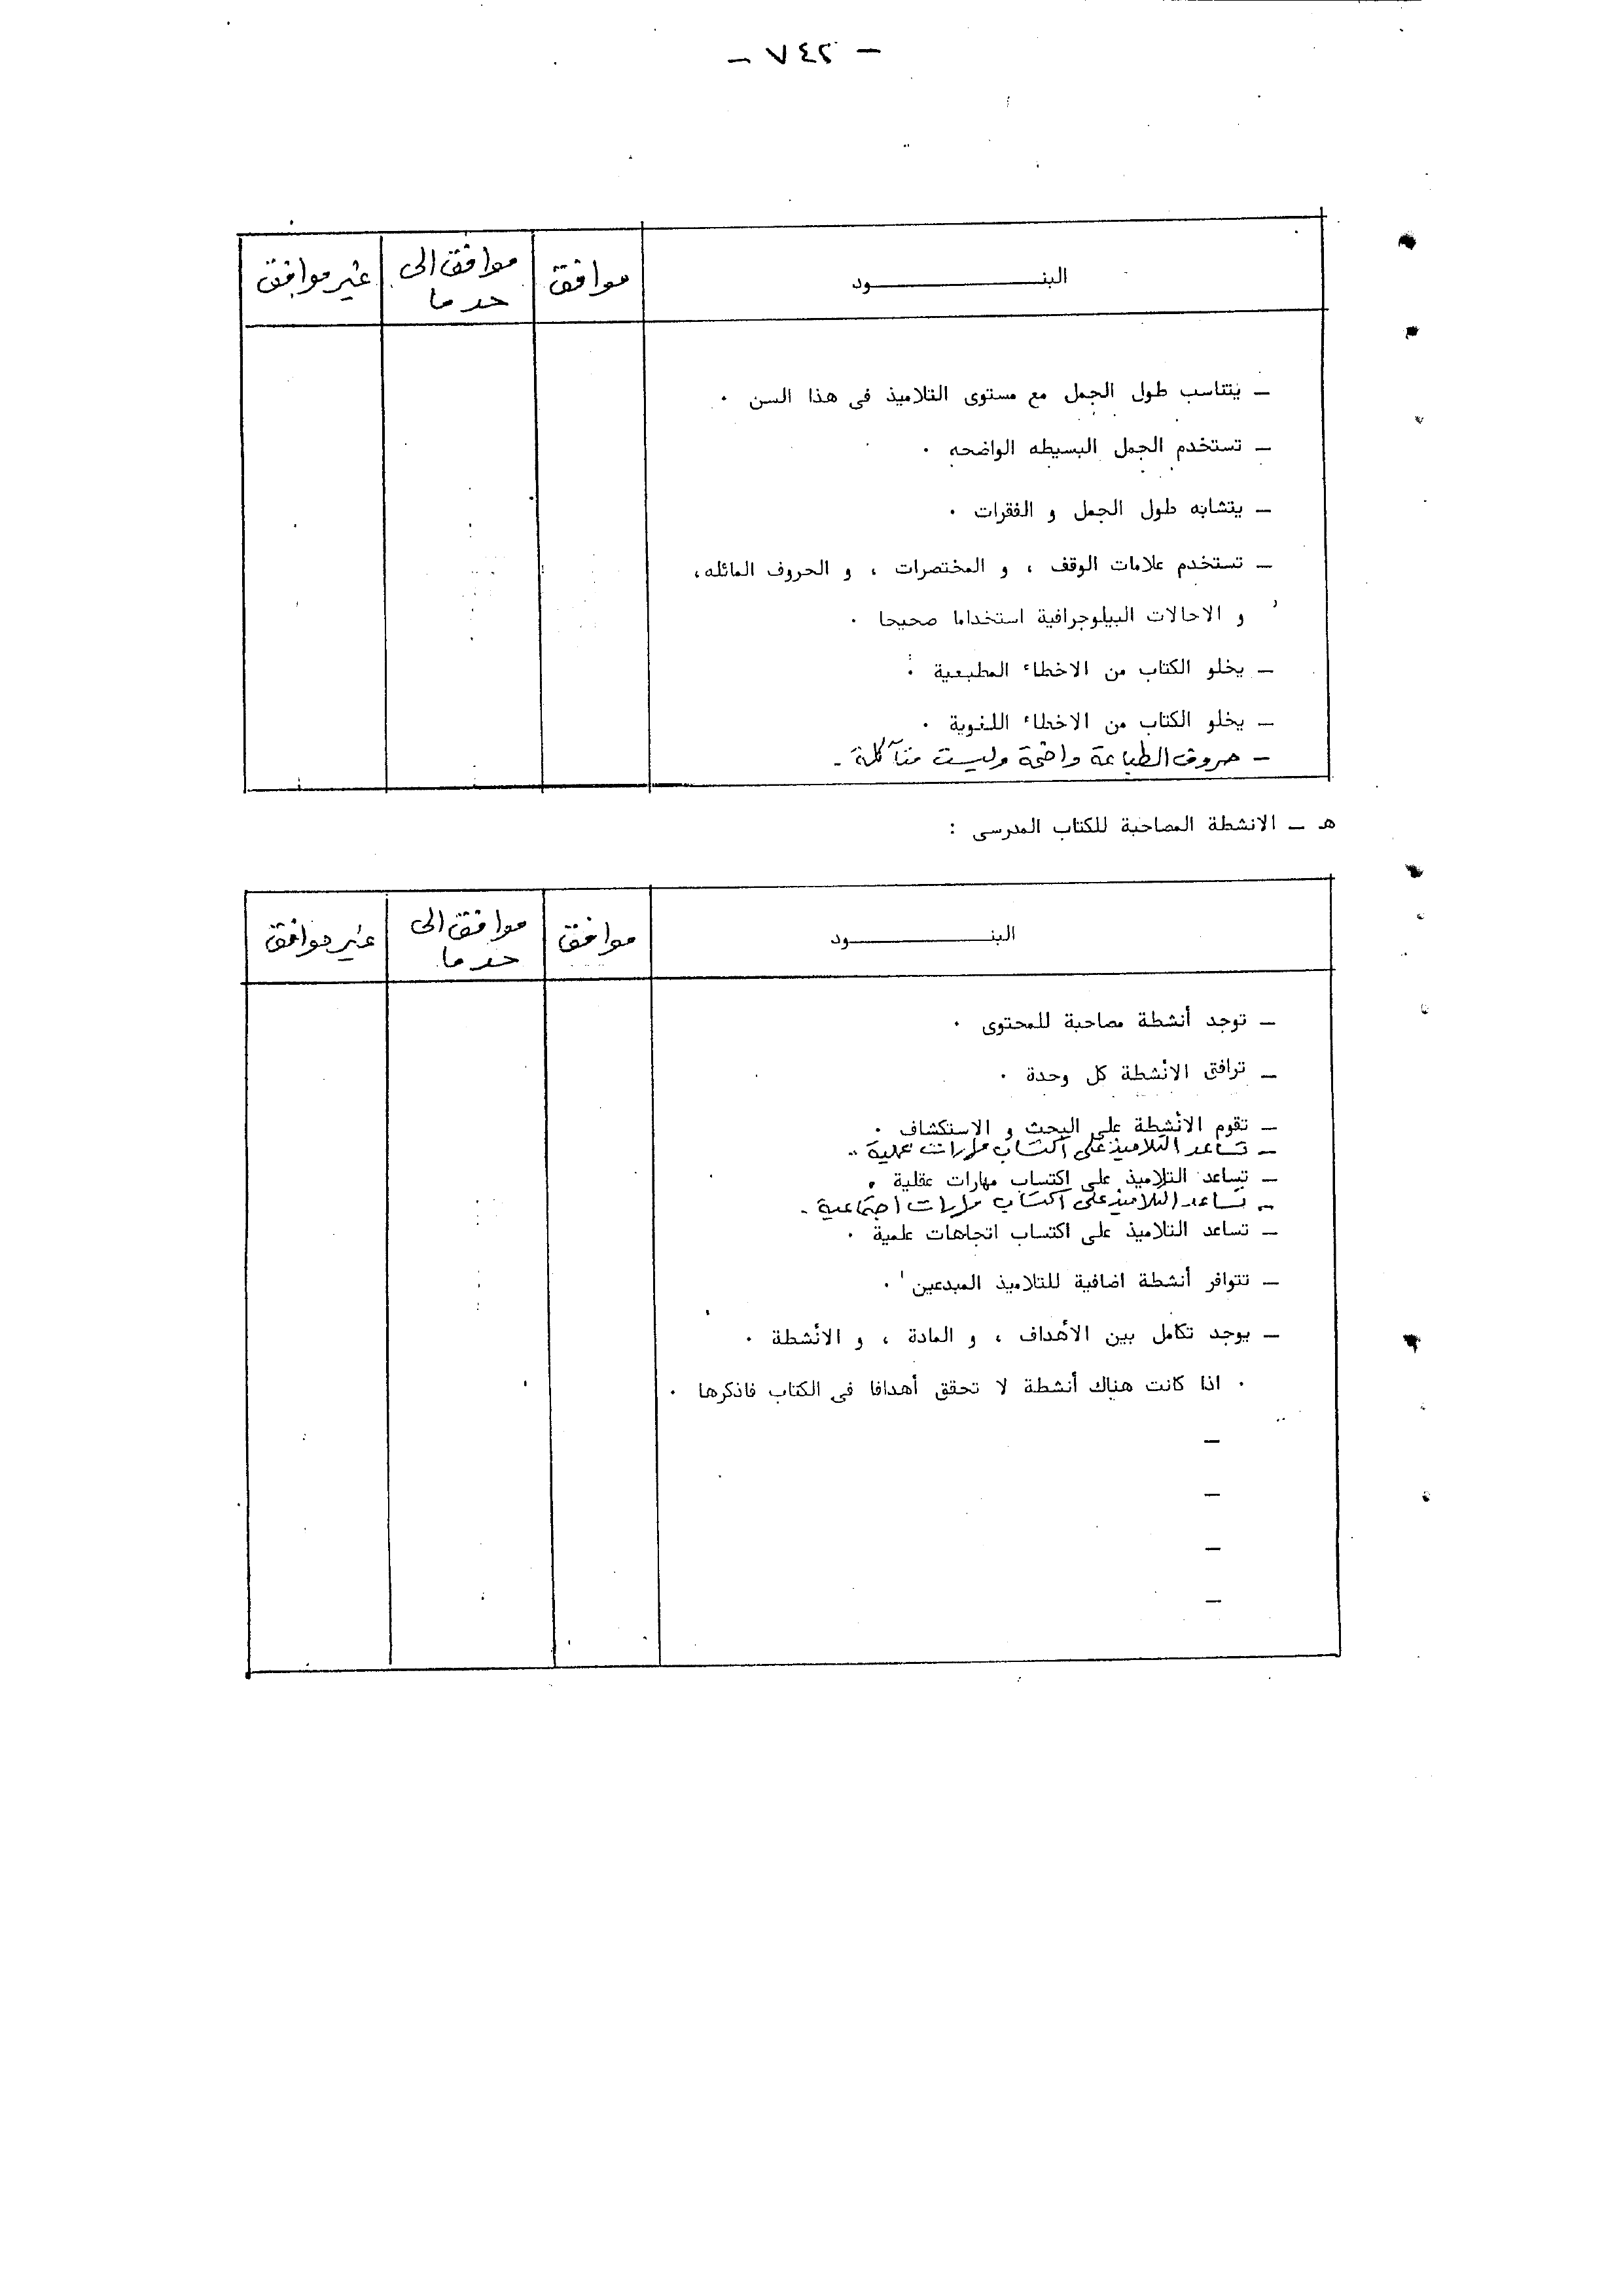 - ٧٤٢ -
البنـــــــــــــود
موافق
موافق الى
حد ما
غير موافق
ـ يتناسب طول الجمل مع مستوى التلاميذ فى هذا السن ٠
ـ تستخدم الجمل البسيطه الواضحه ٠
ـ يتشابه طول الجمل و الفقرات ٠
ـ تستخدم علامات الوقف ، و المختصرات ، و الحروف المائله ،
و الاحالات البيلوجرافية استخداما صحيحا ٠
ـ يخلو الكتاب من الاخطاء المطبعية ٠
ـ يخلو الكتاب من الاخطاء اللغوية ٠
- حروف الطباعة واضحة وليست متآكلة -
هـ ـ الانشطة المصاحبة للكتاب المدرسى :
البنـــــــــــــود
موافق
موافق الى
حد ما
غير موافق
ـ توجد أنشطة مصاحبة للمحتوى ٠
ـ ترافق الأنشطة كل وحدة ٠
ـ تقوم الأنشطة على البحث و الاستكشاف ٠
- تساعد التلاميذ على اكتساب مهارات عملية ٠
ـ تساعد التلاميذ على اكتساب مهارات عقلية ٠
- تساعد التلاميذ على اكتساب مهارات اجتماعية -
ـ تساعد التلاميذ على اكتساب اتجاهات علمية ٠
ـ تتوافر أنشطة اضافية للتلاميذ المبدعين ٠
ـ يوجد تكامل بين الأهداف ، و المادة ، و الأنشطة ٠
٠ اذا كانت هناك أنشطة لا تحقق أهدافا فى الكتاب فاذكرها ٠
ـ
ـ
ـ
ـ